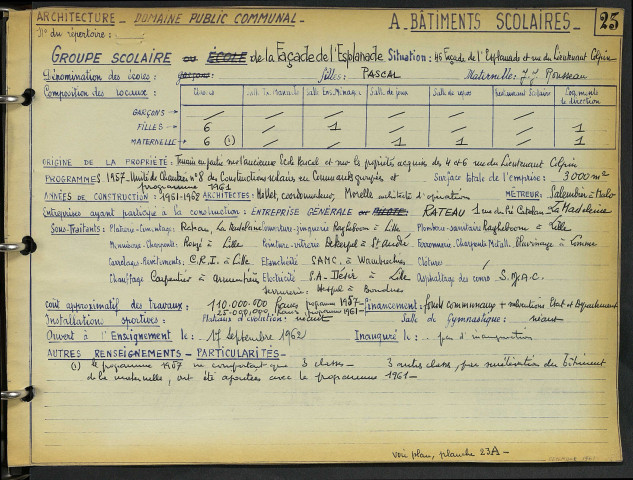 ARCHITECTURE - DOMAINE PUBLIC COMMUNAL - A. BÂTIMENTS SCOLAIRES - 23
N° du répertoire :
GROUPE SCOLAIRE ou ÉCOLE de la Façade de l'Esplanade Situation : 46 Façade de l'Esplanade et rue du Lieutenant Colpin
Dénomination des écoles : garçons : filles : PASCAL Maternelle : J.J. Rousseau
Composition des locaux : Classes Salle Ens. Ménager Salle de jeux Salle de repos Restaurant Scolaire Logements de direction
GARÇONS / / / / / / /
FILLES 6 / 1 / / / 1
MATERNELLE 6 (1) / / 1 1 / 1
ORIGINE DE LA PROPRIÉTÉ : Terrain en partie sur l'ancienne Ecole Pascal et sur la propriété acquise des 4 et 6 rue du Lieutenant Colpin
PROGRAMMES 1957 - Unité de Chantier n° 8 des Constructions scolaires en Communauté groupées et Surface totale de l'emprise : 3000 m²
programme 1961
ANNÉES DE CONSTRUCTION : 1961-1962 ARCHITECTES : coordonnateur, Morelle architecte d'opération MÉTREUR : Salembier à
Entreprises ayant participé à la construction : ENTREPRISE GÉNÉRALE ou PILOTE RATEAU 1 rue du Pré Catelan La Madeleine
Sous-Traitants : Platrerie - Cimentage : La Madeleine Peinture - vitrerie Ragheboom à Lille Plomberie - sanitaire Ragheboom à Lille
Menuiserie - Charpente : Rougé à Lille Peinture - vitrerie à St André Ferronnerie - Charpente Métall. à Lomme
Carrelages - Revêtements : C.R.I. à Lille Etanchéité SAMC. à Wambrechies Clôtures /
Chauffage Carpentier à Armentières Electricité S.A. Désir à Lille Asphaltage des cours S.M.A.C.
Serrurerie : à Bondues
Coût approximatif des travaux : 110.000.000 francs programme 1957 - Financement : fonds communaux + subventions Etat et Département
25.000.000 francs programme 1961 -
Installation sportives : Plateaux d'évolution : néant Salle de Gymnastique : néant
Ouvert à l'Enseignement le : 17 septembre 1962 Inauguré le : pas d'inauguration
AUTRES RENSEIGNEMENTS - PARTICULARITÉS -
(1) Le programme 1957 ne comportait que 3 classes - 3 autres classes, par surélévation du bâtiment
de la maternelle, ont été ajoutées avec le programme 1961 -
voir plan, planche 23A -